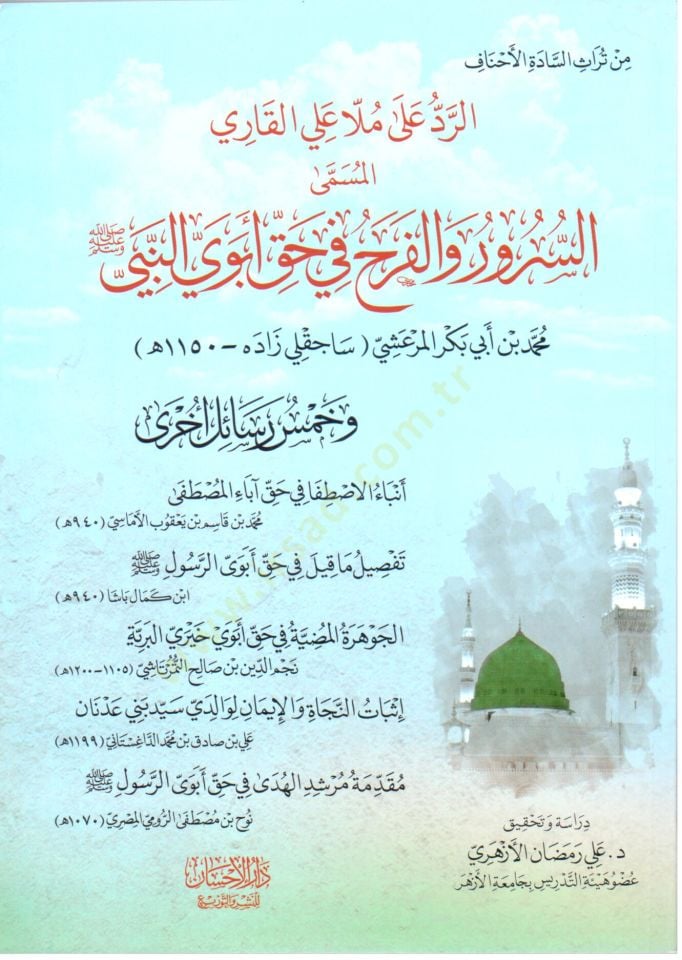 مِنْ تُرَاثِ السَّادَةِ الأَحْنَافِ
الرَّدُّ عَلَى مُلَّا عَلِي القَارِي
المُسَمَّى
السُّرُورُ وَالفَرَحُ فِي حَقِّ أَبَوَيِ النَّبِيِّ ﷺ
مُحَمَّد بْن أَبِي بَكْر المَرْعَشِيّ (سَاجَقْلِي زَادَه - ١١٥٠هـ)
وَخَمْسُ رَسَائِلَ أُخْرَى
أَنْبَاءُ الاصْطِفَا فِي حَقِّ آبَاءِ المُصْطَفَى
مُحَمَّد بْن قَاسِم بْن يَعْقُوب الأَمَاسِيّ (٩٤٠هـ)
تَفْصِيلُ مَا قِيلَ فِي حَقِّ أَبَوَيِ الرَّسُولِ ﷺ
ابْن كَمَال بَاشَا (٩٤٠هـ)
الجَوْهَرَةُ المُضِيَّةُ فِي حَقِّ أَبَوَيْ خَيْرِي البَرِيَّةِ
نَجْم الدِّين بْن صَالِح التُّمُرْتَاشِيّ (١١٠٥-١٢٠٠هـ)
إِثْبَاتُ النَّجَاةِ وَالإِيمَانِ لِوَالِدَيْ سَيِّدِ بَنِي عَدْنَان
عَلِي بْن صَادِق بْن مُحَمَّد الدَّاغِسْتَانِيّ (١١٩٩هـ)
مُقَدِّمَةُ مُرْشِدِ الهُدَى فِي حَقِّ أَبَوَيِ الرَّسُولِ ﷺ
نُوح بْن مُصْطَفَى الرُّومِيّ المِصْرِيّ (١٠٧٠هـ)
دِرَاسَة وَتَحْقِيق
د. عَلِي رَمَضَان الأَزْهَرِيّ
عُضْو هَيْئَةِ التَّدْرِيسِ بِجَامِعَةِ الأَزْهَر
دَارُ الإِحْسَان
لِلنَّشْرِ وَالتَّوْزِيع